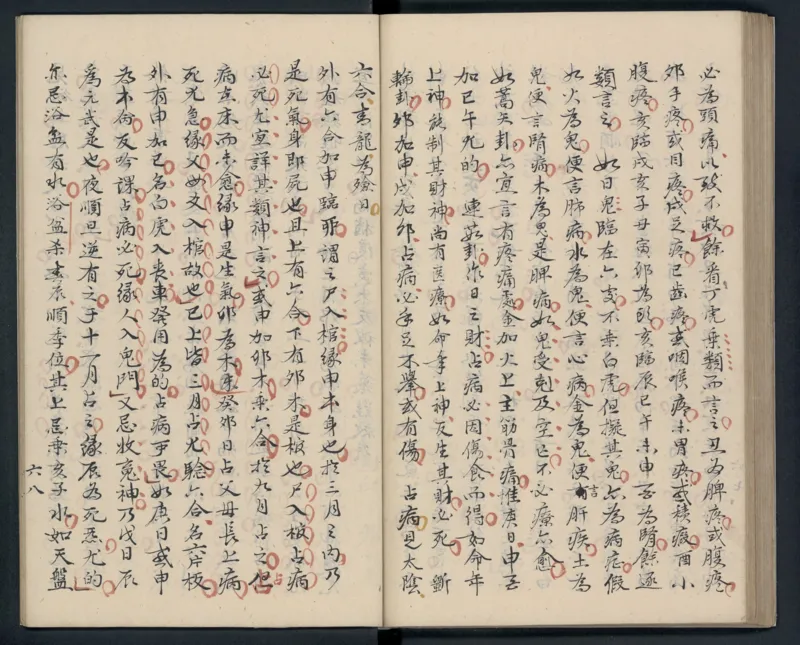 必為頭痛以致不救餘看丁虎乗類而言之丑為脾疼或腹疼
卯手疼或目疼戌足疼巳齒疼或咽喉疼未胃疼或積痰酉小
腹疼亥臨戌亥子丑寅卯為頭亥臨辰巳午未申酉為腎餘逐
類言之 如日鬼臨在六支不乗白虎但擬其鬼六為病症假
如火為鬼便言肺病水為鬼便言心病金為鬼便言肝疾土為
鬼便言腎病木為鬼是脾病如鬼受剋及空亡不必療亦愈
如蒿矢卦亦宜言有疼痛䖏金加火上主筋骨痛惟庚日申酉
加巳午尤的 連茹卦作日之財占病必因傷食而得如命年
上神能制其財神尚有医療如命年上神反生其財必死 斷
輪卦卯加申戌加卯占病必手足不舉或有傷 占病見太陰
六合青龍為殮日
外有六合加申踏聨謂之尸入棺緣申本身也扵三月之内乃
是死氣身即屍也且上有六合下有卯木是棺也尸入棺占病
必死尤宜詳其類神言之或申加卯木乗六合扵九月占之但
病患床而未愈緣申是生氣卯為木床癸卯日占父母長上病
死尤急緣父母爻入棺故也已上皆三月占尤驗六合名六片板
外有申加巳名白虎入喪車發用為的占病可畏 如庚日或申
為本命反吟課占病必死緣人入鬼門 又忌收䰟神乃戊日辰
為元武是也夜順旦逆有之于十一月占之緣辰為死炁尤的
亦忌浴盆有水浴盆杀主辰順季位其上忌乗亥子水如天盤
六八